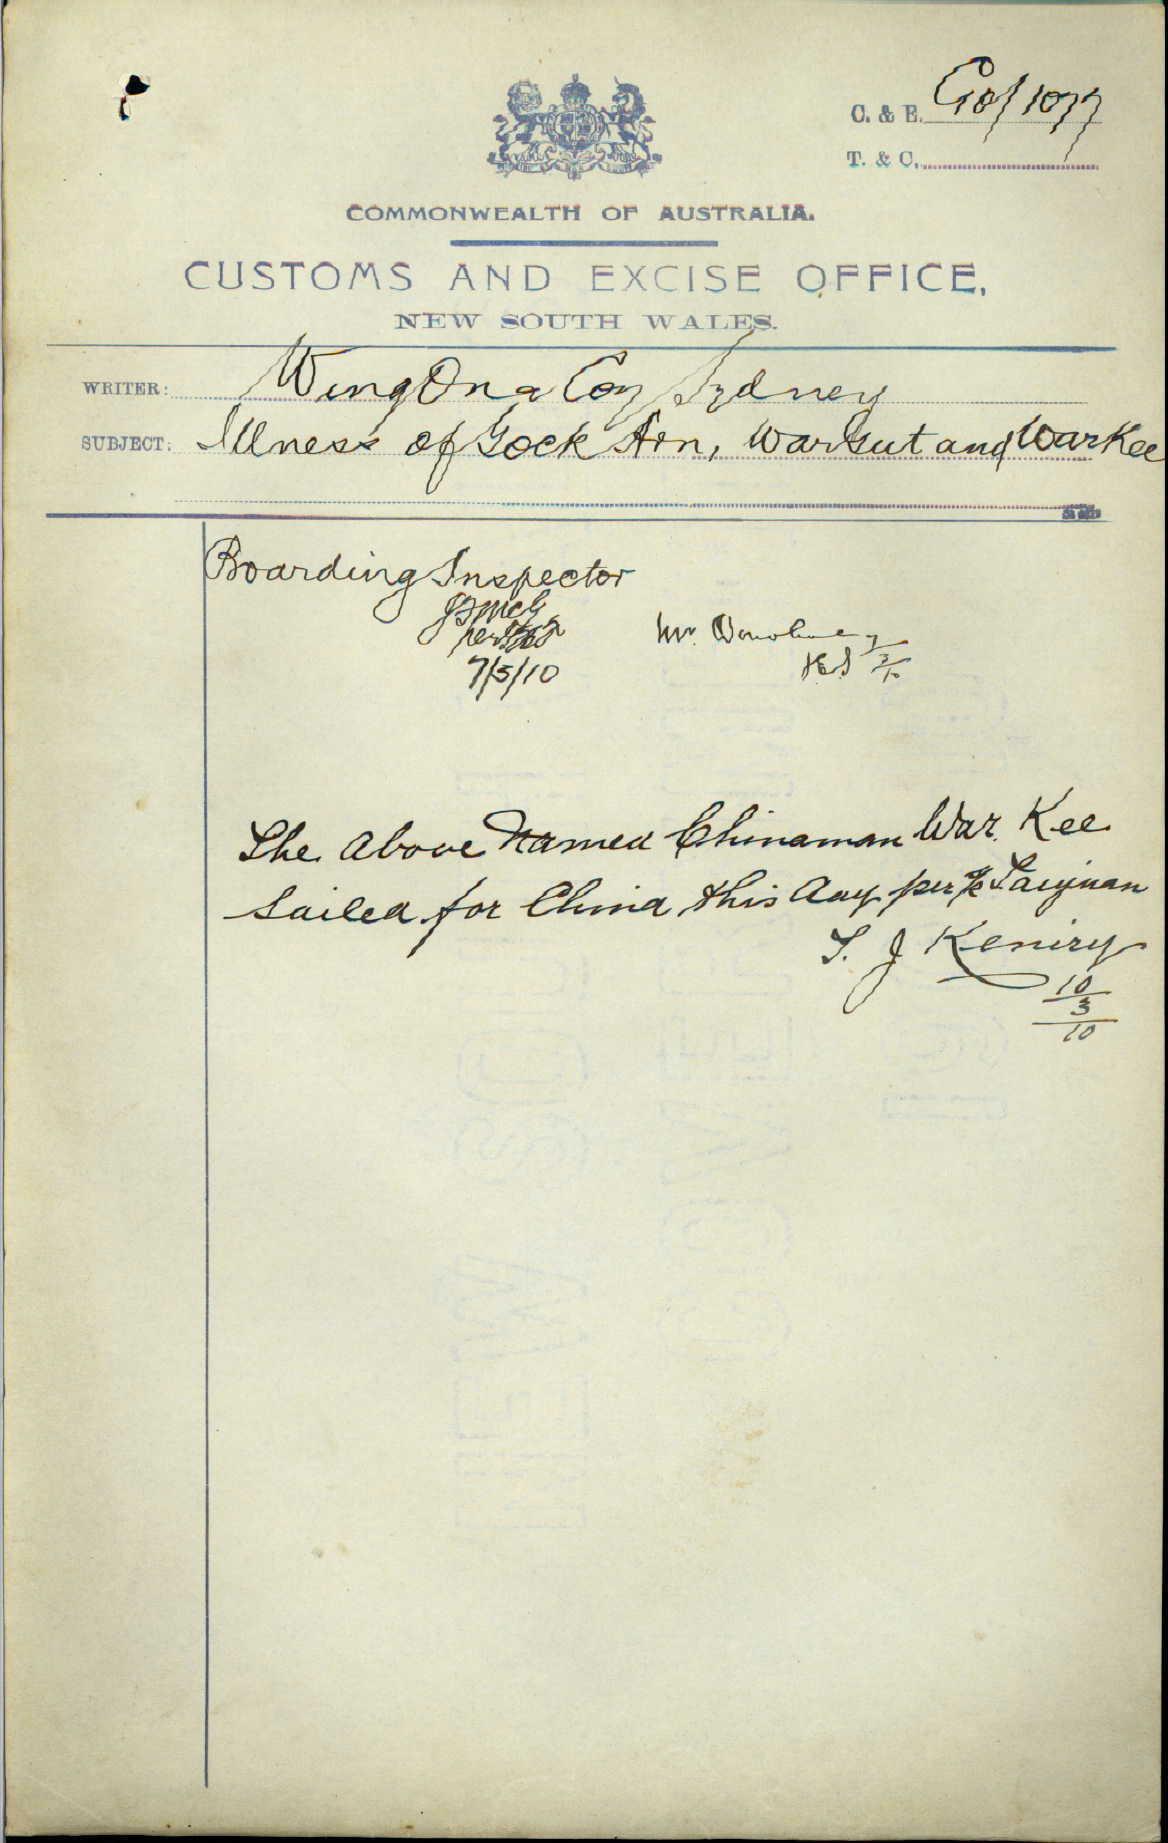 C. & E. G10/1077
T. & C.
COMMONWEALTH OF AUSTRALIA.
CUSTOMS AND EXCISE OFFICE,
NEW SOUTH WALES.
WRITER: Wing On & Coy Sydney
SUBJECT: Illness of Gock Hon, War Gut and War Kee
Boarding Inspector
7/3/10
Mr. Donohue
The above Named Chinaman War Kee
Sailed for China this day per Taiyuan
T. J Keniry
10
3
10